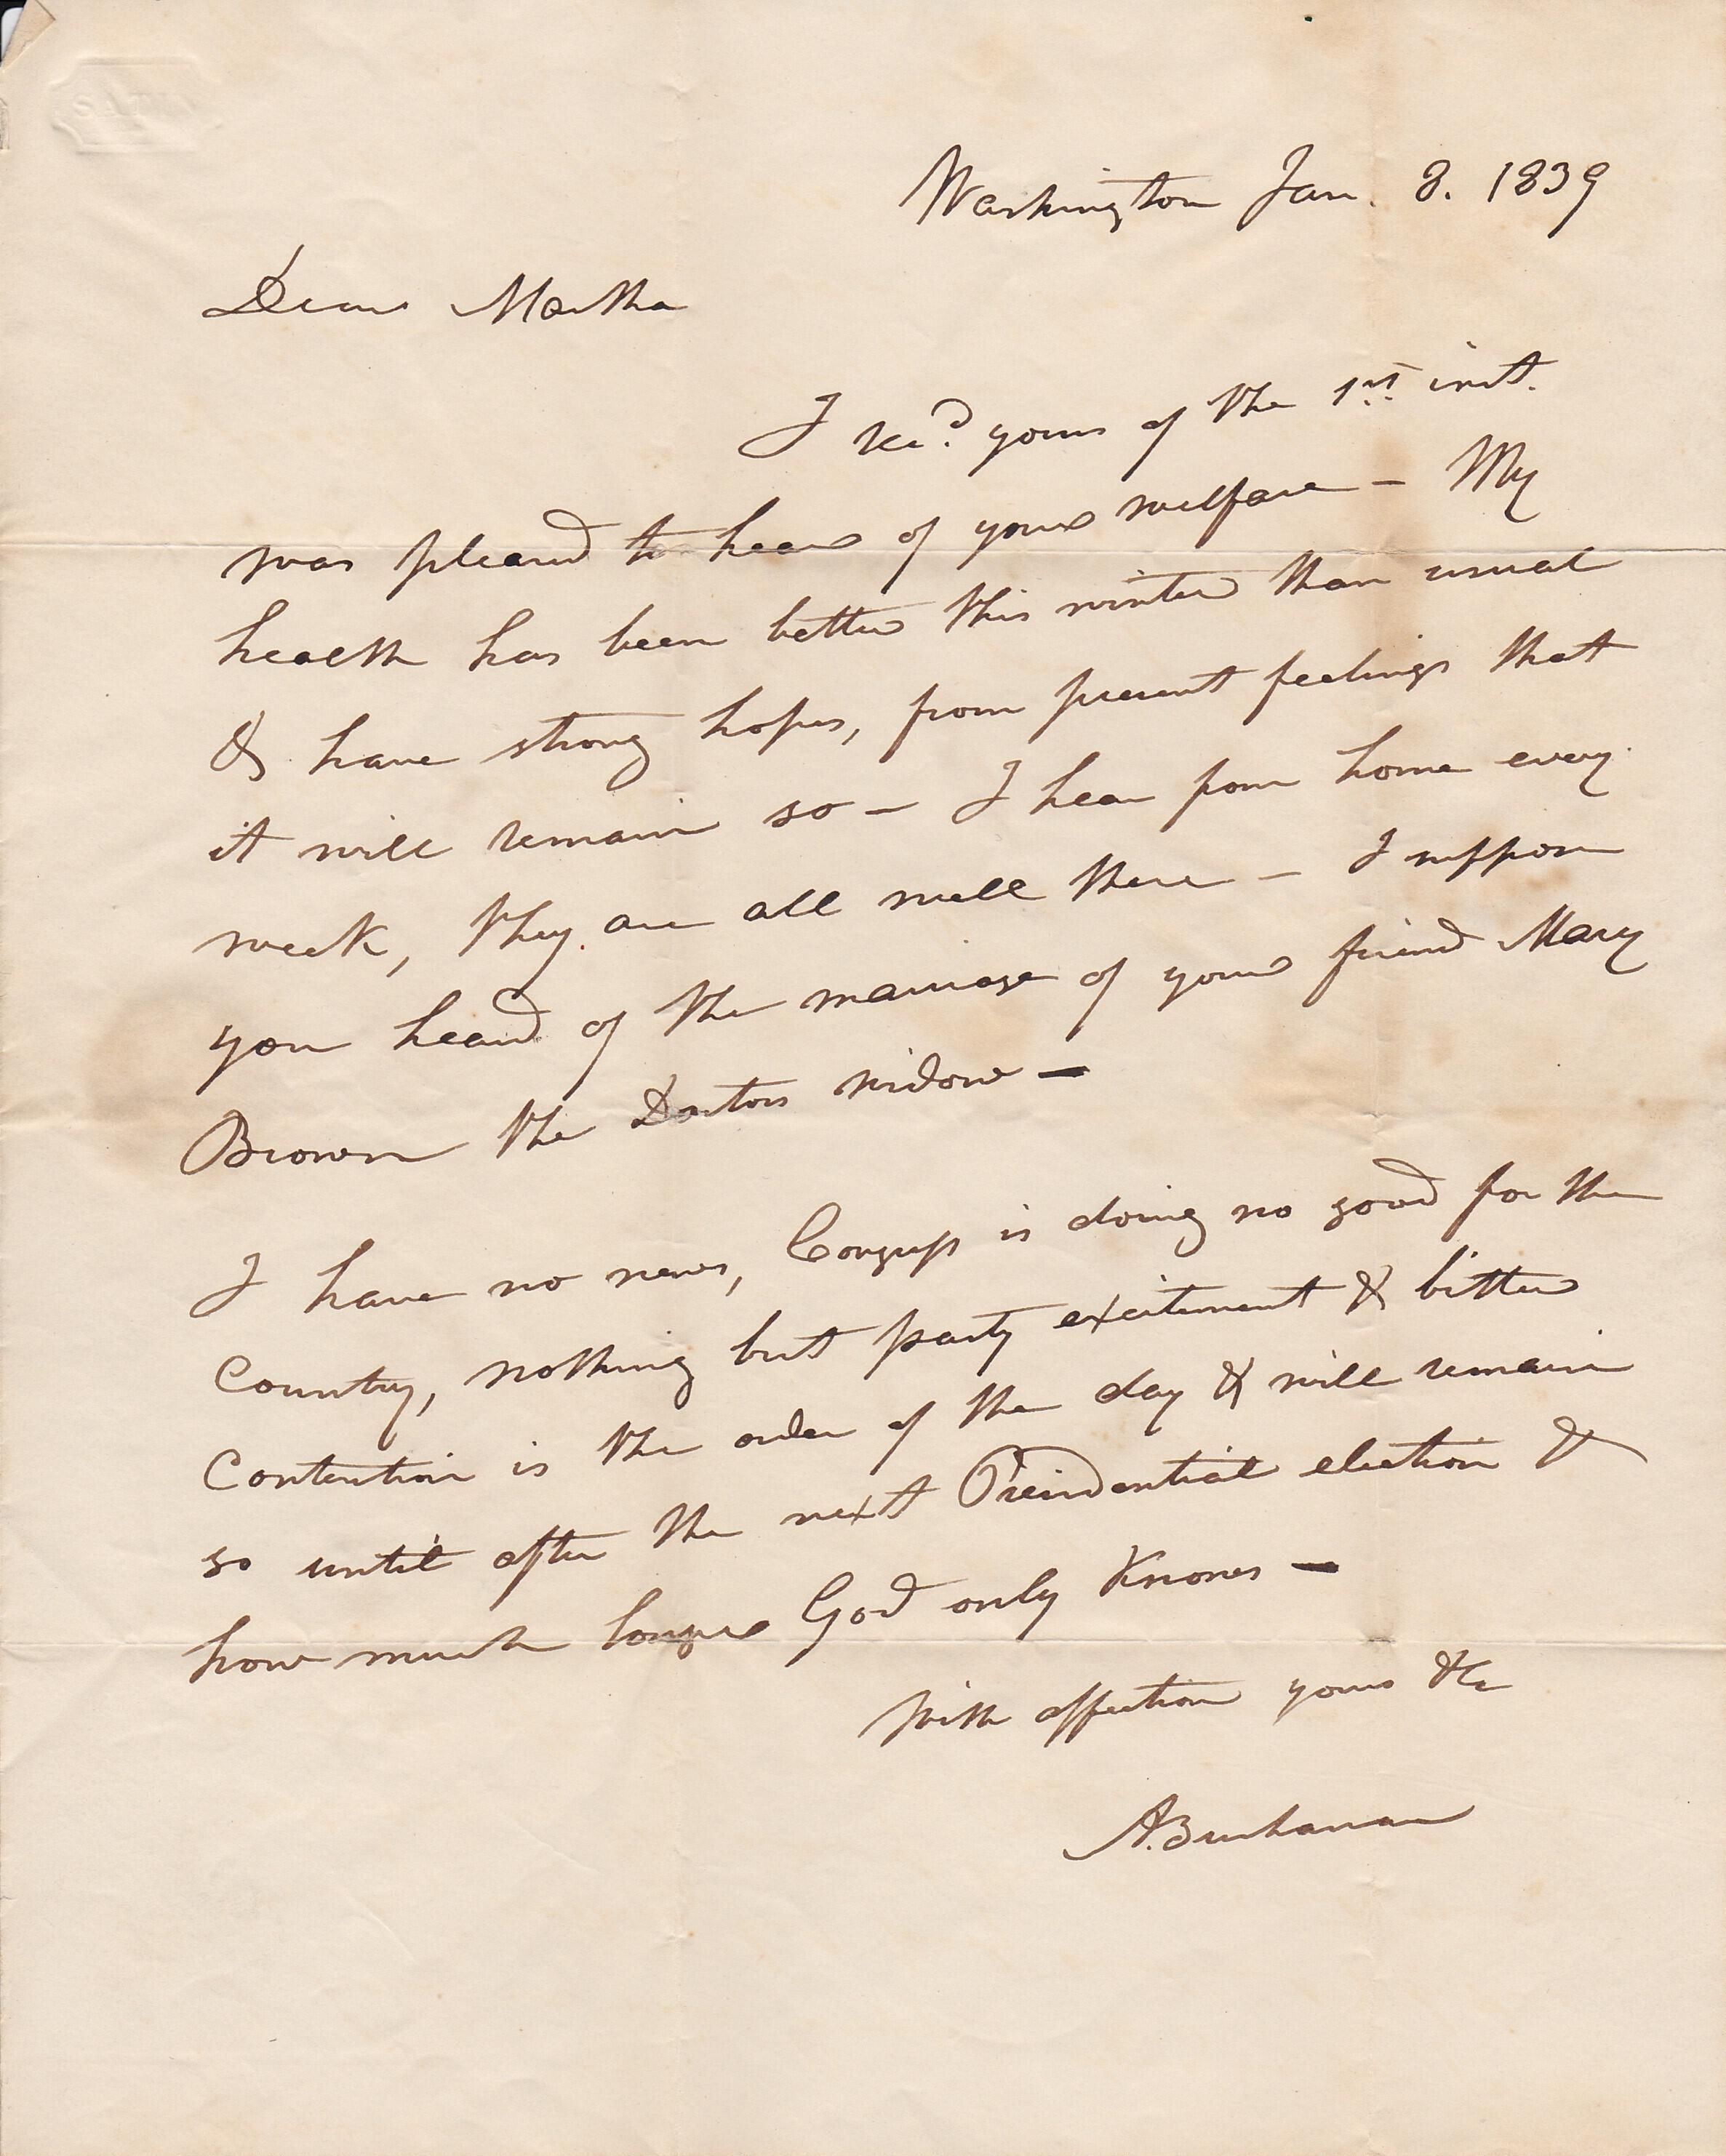 Washington Jan. 8. 1839
Dear Martha
I recd. yours of the 1st. inst.
was pleased to hear of your welfare – My
health has been better this winter than usual
& have strong hopes, from present feelings that
it will remain so – I hear from home every
week, they are all well there – I suppose
you heard of the marriage of your friend Mary
Brown the Doctors widow –
I have no news, Congress is doing no good for the
Country, nothing but party excitement & bitter
Contention is the order of the day & will remain
so until after the next Presidential election &
how much longer God only Knows –
With affection yours &c
A. Buchanan